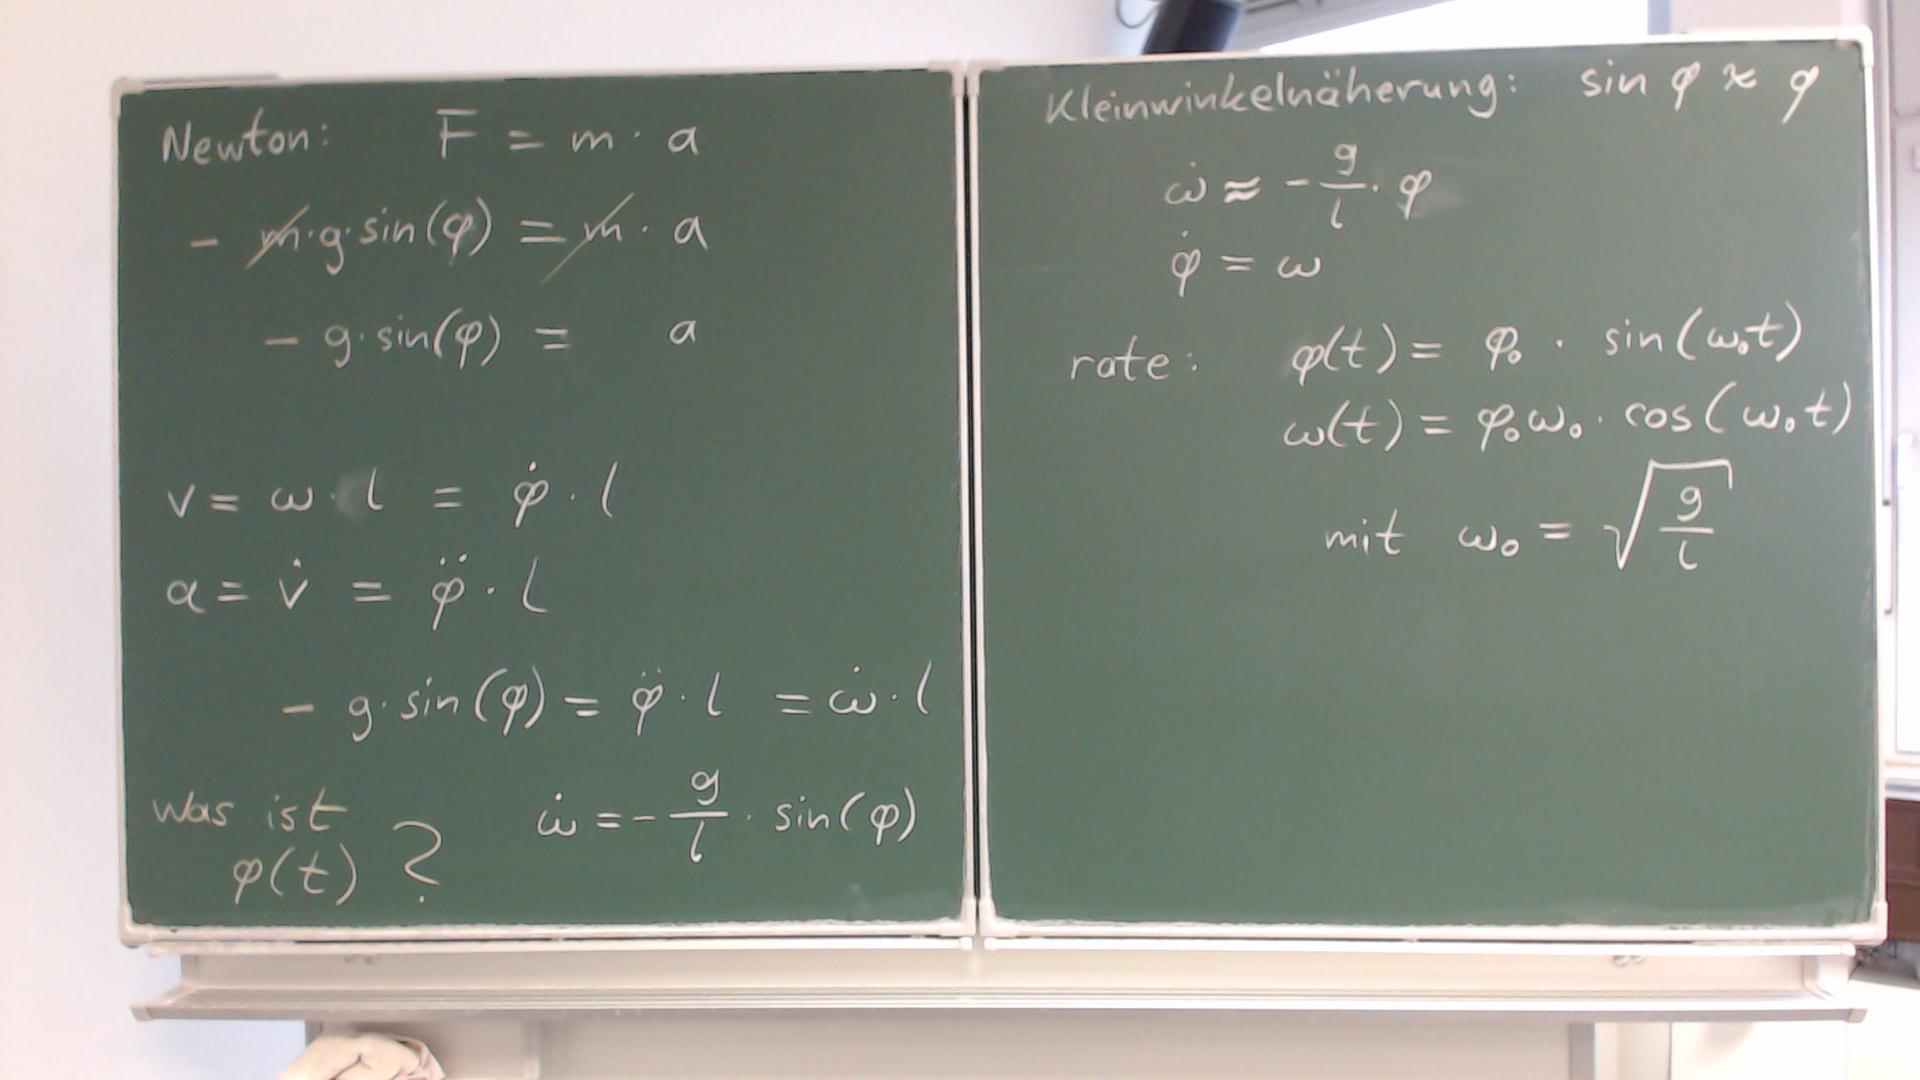 Newton: F = m · a
- m·g·sin(φ) = m · a
- g·sin(φ) = a
v = ω · l = φ̇ · l
a = v̇ = φ̈ · l
- g·sin(φ) = φ̈ · l = ω̇ · l
was ist φ(t) ?
ω̇ = - g/l · sin(φ)
Kleinwinkelnäherung: sin φ ≈ φ
ω̇ ≈ - g/l · φ
φ̇ = ω
rate: φ(t) = φ₀ · sin(ω₀t)
ω(t) = φ₀ω₀ · cos(ω₀t)
mit ω₀ = √(g/l)